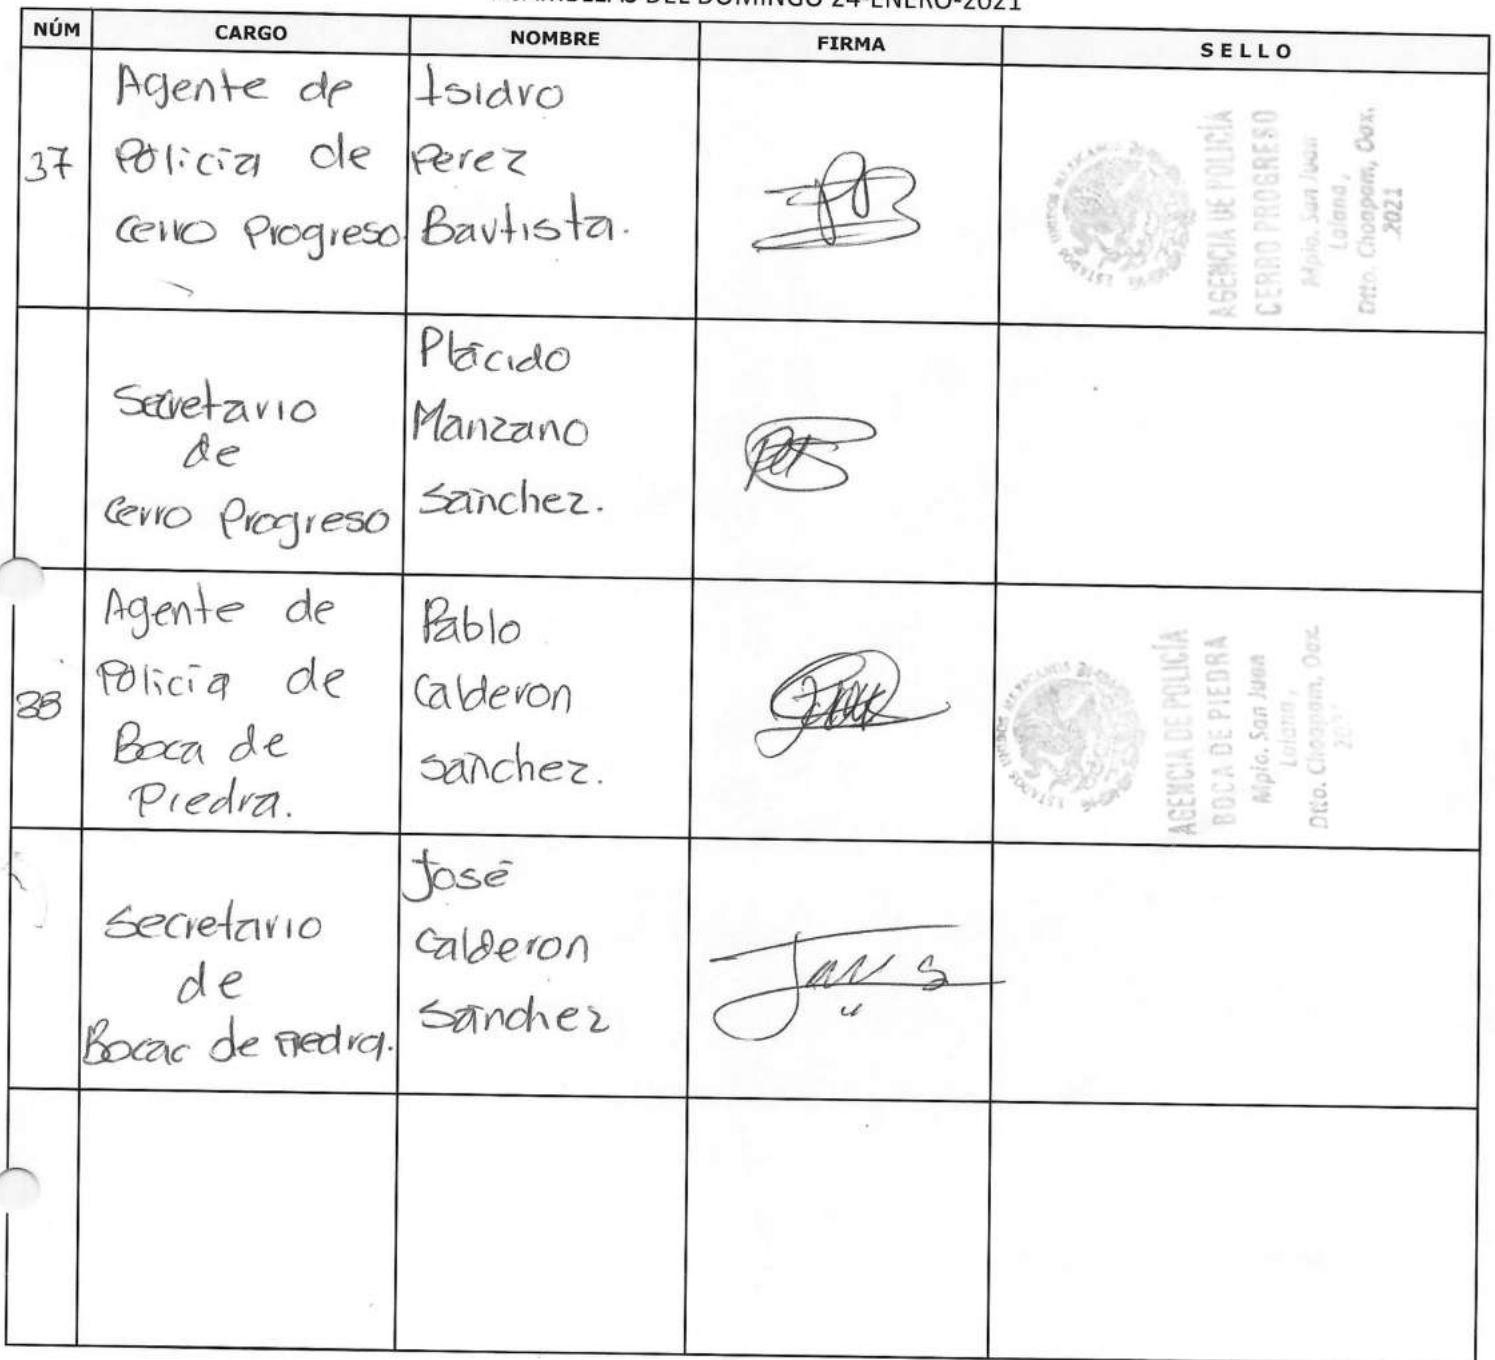 DEL DOMINGO 24-ENERO-2021
NÚM CARGO NOMBRE FIRMA SELLO
37
Agente de
Policía de
Cerro Progreso
Isidro
Perez
Bautista.
ESTADOS UNIDOS MEXICANOS
AGENCIA DE POLICÍA
CERRO PROGRESO
Mpio. San Juan
Lalana,
Dtto. Choapam, Oax.
2021
Secretario
de
Cerro Progreso
Plácido
Manzano
Sánchez.
38
Agente de
Policía de
Boca de
Piedra.
Pablo
Calderon
Sánchez.
ESTADOS UNIDOS MEXICANOS
AGENCIA DE POLICÍA
BOCA DE PIEDRA
Mpio. San Juan
Lalana,
Dtto. Choapam, Oax.
Secretario
de
Bocac de Piedra.
José
Calderon
Sánchez